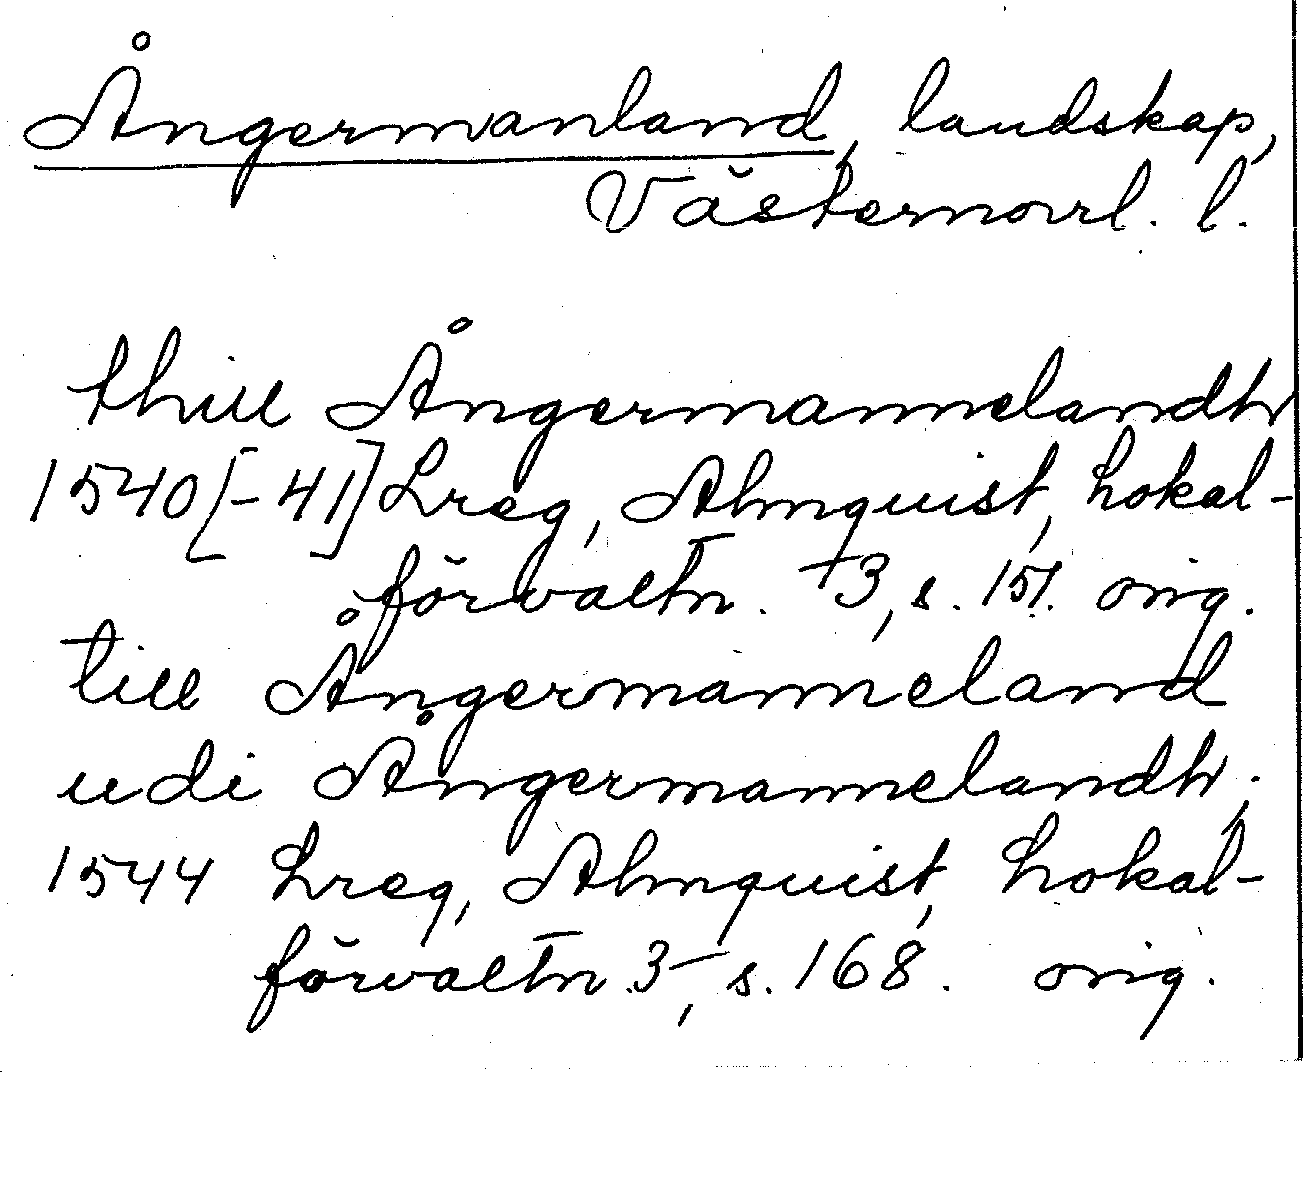 Ångermanland, landskap,
Västernorrl. l.
thill Ångermannelandh
1540[-41] Lreg, Almquist, Lokal-
förvaltn. 3, s. 151. orig.
till Ångermanneland
udi Ångermannelandh,
1544 Lreg, Almquist, Lokal-
förvaltn. 3, s. 168. orig.